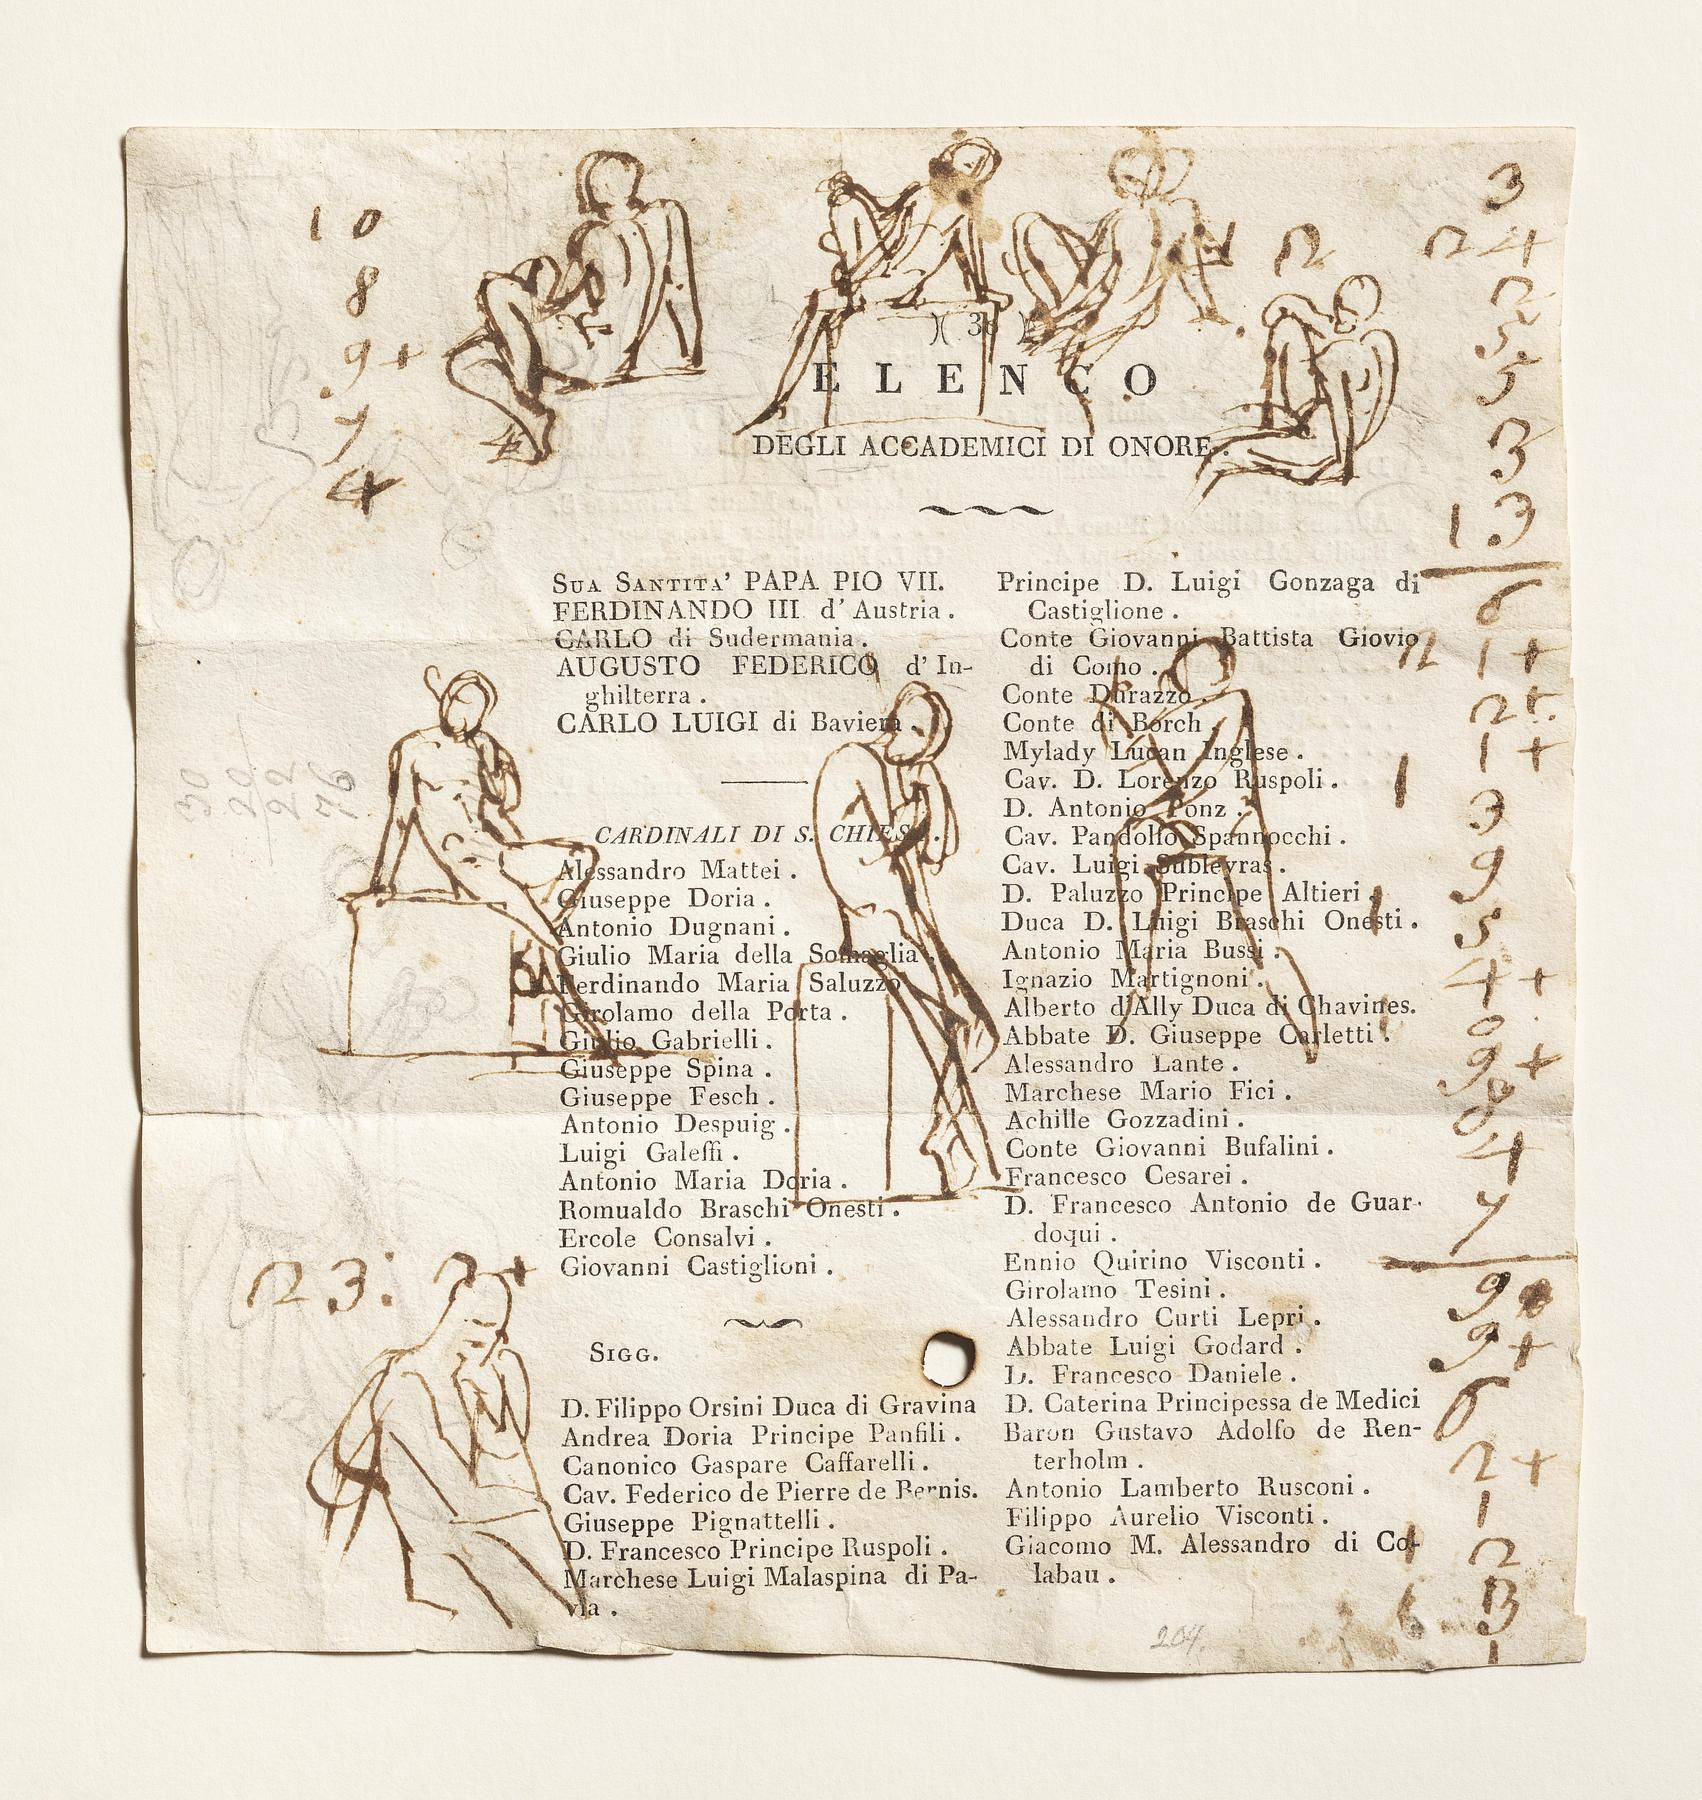 )( 36 )(
ELENCO
DEGLI ACCADEMICI DI ONORE.
SUA SANTITA' PAPA PIO VII.
FERDINANDO III d' Austria.
CARLO di Sudermania.
AUGUSTO FEDERICO d' In-
ghilterra.
CARLO LUIGI di Baviera.
CARDINALI DI S. CHIESA.
Alessandro Mattei.
Giuseppe Doria.
Antonio Dugnani.
Giulio Maria della Somaglia.
Ferdinando Maria Saluzzo
Girolamo della Porta.
Giulio Gabrielli.
Giuseppe Spina.
Giuseppe Fesch.
Antonio Despuig.
Luigi Galeffi.
Antonio Maria Doria.
Romualdo Braschi Onesti.
Ercole Consalvi.
Giovanni Castiglioni.
SIGG.
D. Filippo Orsini Duca di Gravina
Andrea Doria Principe Panfili.
Canonico Gaspare Caffarelli.
Cav. Federico de Pierre de Bernis.
Giuseppe Pignattelli.
D. Francesco Principe Ruspoli.
Marchese Luigi Malaspina di Pa-
via.
Principe D. Luigi Gonzaga di
Castiglione.
Conte Giovanni Battista Giovio
di Como.
Conte Durazzo.
Conte di Borch.
Mylady Lucan Inglese.
Cav. D. Lorenzo Ruspoli.
D. Antonio Ponz.
Cav. Pandolfo Spannocchi.
Cav. Luigi Subleyras.
D. Paluzzo Principe Altieri.
Duca D. Luigi Braschi Onesti.
Antonio Maria Bussi.
Ignazio Martignoni.
Alberto d'Ally Duca di Chavines.
Abbate D. Giuseppe Carletti.
Alessandro Lante.
Marchese Mario Fici.
Achille Gozzadini.
Conte Giovanni Bufalini.
Francesco Cesarei.
D. Francesco Antonio de Guar-
doqui.
Ennio Quirino Visconti.
Girolamo Tesini.
Alessandro Curti Lepri.
Abbate Luigi Godard.
D. Francesco Daniele.
D. Caterina Principessa de Medici
Baron Gustavo Adolfo de Ren-
terholm.
Antonio Lamberto Rusconi.
Filippo Aurelio Visconti.
Giacomo M. Alessandro di Co-
labau.
10
8
9+
7
4
30
20
22
76
23: 2+
3
2 24
2
5
5
3
13
6
1+
2+
1+
1 3
9
5
4+
9+
4
7
9
9+
6
2+
1
2
13
1
204.